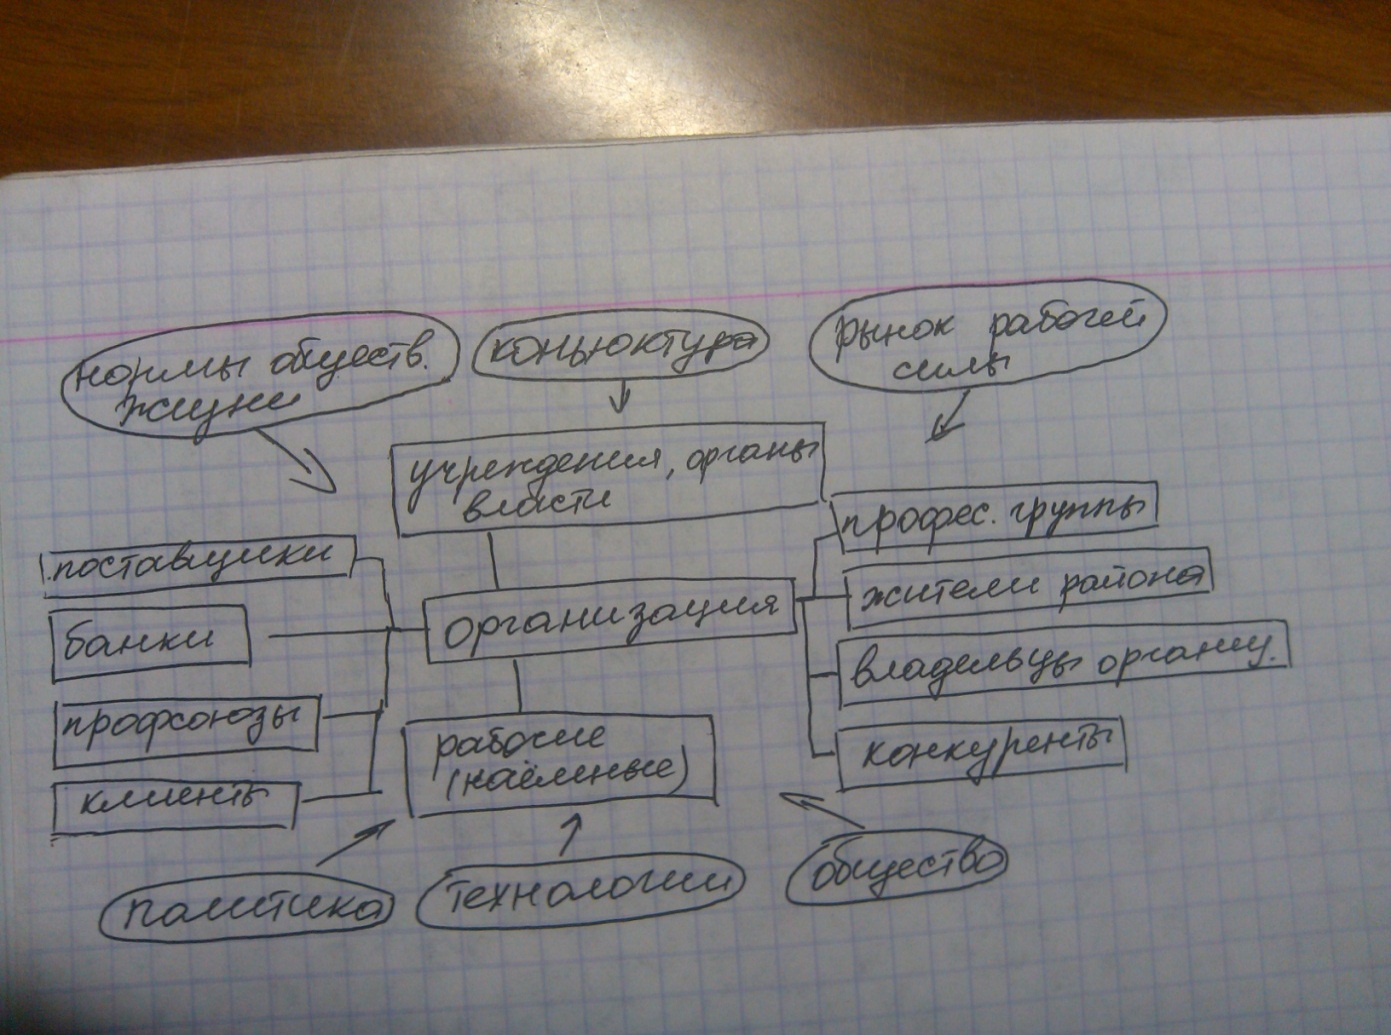 нормы обществ.
жизни
коньюктура
рынок рабочей
силы
учреждения, органы
власти
поставщики
банки
профсоюзы
клиенты
организация
рабочие
(наёмные)
професс. группы
жители района
владельцы организ.
конкуренты
политика
технологии
общество